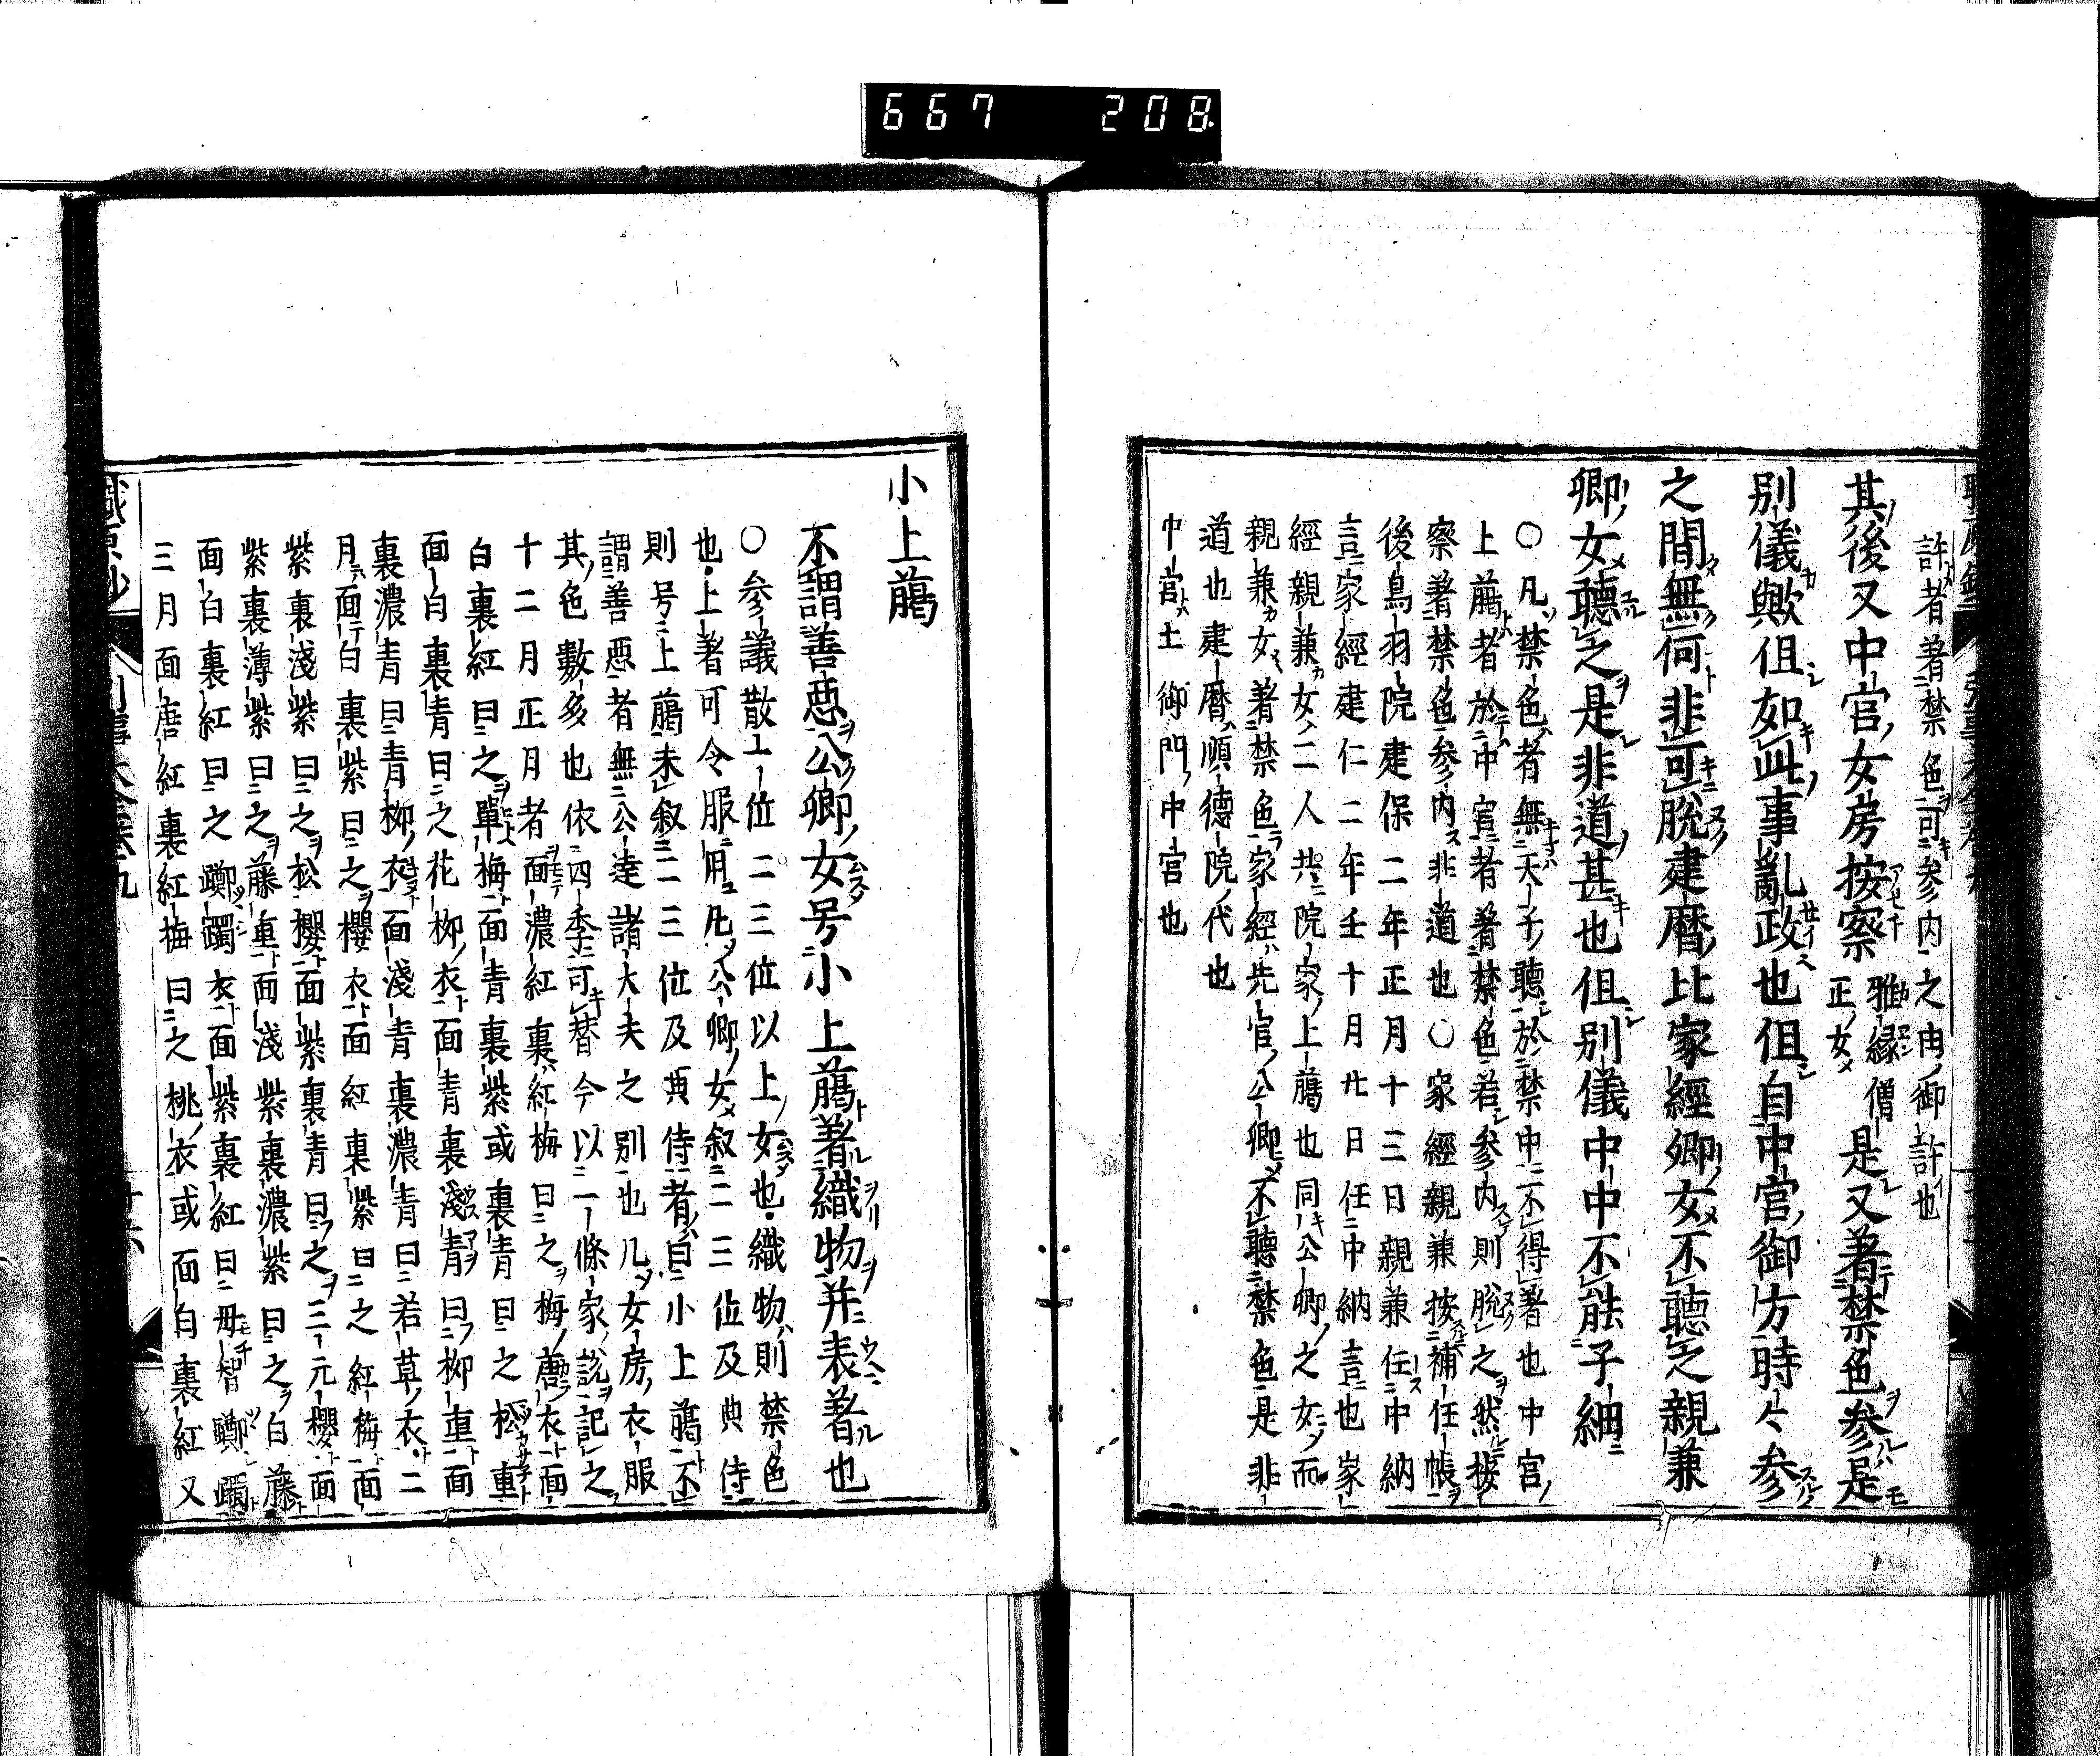 667 208
許者著禁色可参内之由御許也
其後又中宮女房按察雅縁僧正女是又著禁色参是
別儀歟但如此事亂政也但自中宮御方時々参
之間無何非可脱建暦比家經卿女不聴之親兼
卿女聴之是非道甚也但別儀中中不能子細
〇凡禁色者無天子聴於禁中不得著也中宮
上﨟者於中宮者著禁色若参内則脱之然按
察著禁色参内非道也〇家經親兼按補任帳
後鳥羽院建保二年正月十三日親兼任中納
言家經建仁二年壬十月廿日任中納言也家
經親兼女二人共院家上﨟也同公卿之女而
親兼女著禁色家經先官公卿不聴禁色是非
道也建暦順德院代也
中宮土御門中宮也
小上﨟
不謂善惡公卿女号小上﨟著織物并表著也
〇参議散二位三位以上女也織物則禁色
也上著可令服用凡公卿女叙二三位及典侍
則号上﨟未叙二三位及典侍者曰小上﨟不
謂善惡者無公達諸大夫之別也凡女房衣服
其色數多也依四季可替今以一條家説記之
十二月正月者面濃紅裏紅梅曰之梅衣面
白裏紅曰之單梅面青裏紫或裏青曰之松重
面白裏青曰之花柳衣面青裏淺青曰柳重面
裏濃青曰青柳衣面淺青裏濃青曰若草衣二
月面白裏紫曰之櫻衣面紅裏紫曰之紅梅面
紫裏淺紫曰之松櫻面紫裏青曰之三元櫻面
紫裏薄紫曰之藤重面淺紫裏濃紫曰之白藤
面白裏紅曰之躑躅衣面紫裏紅曰毋智躑躅
三月面唐紅裏紅梅曰之桃衣或面白裏紅又